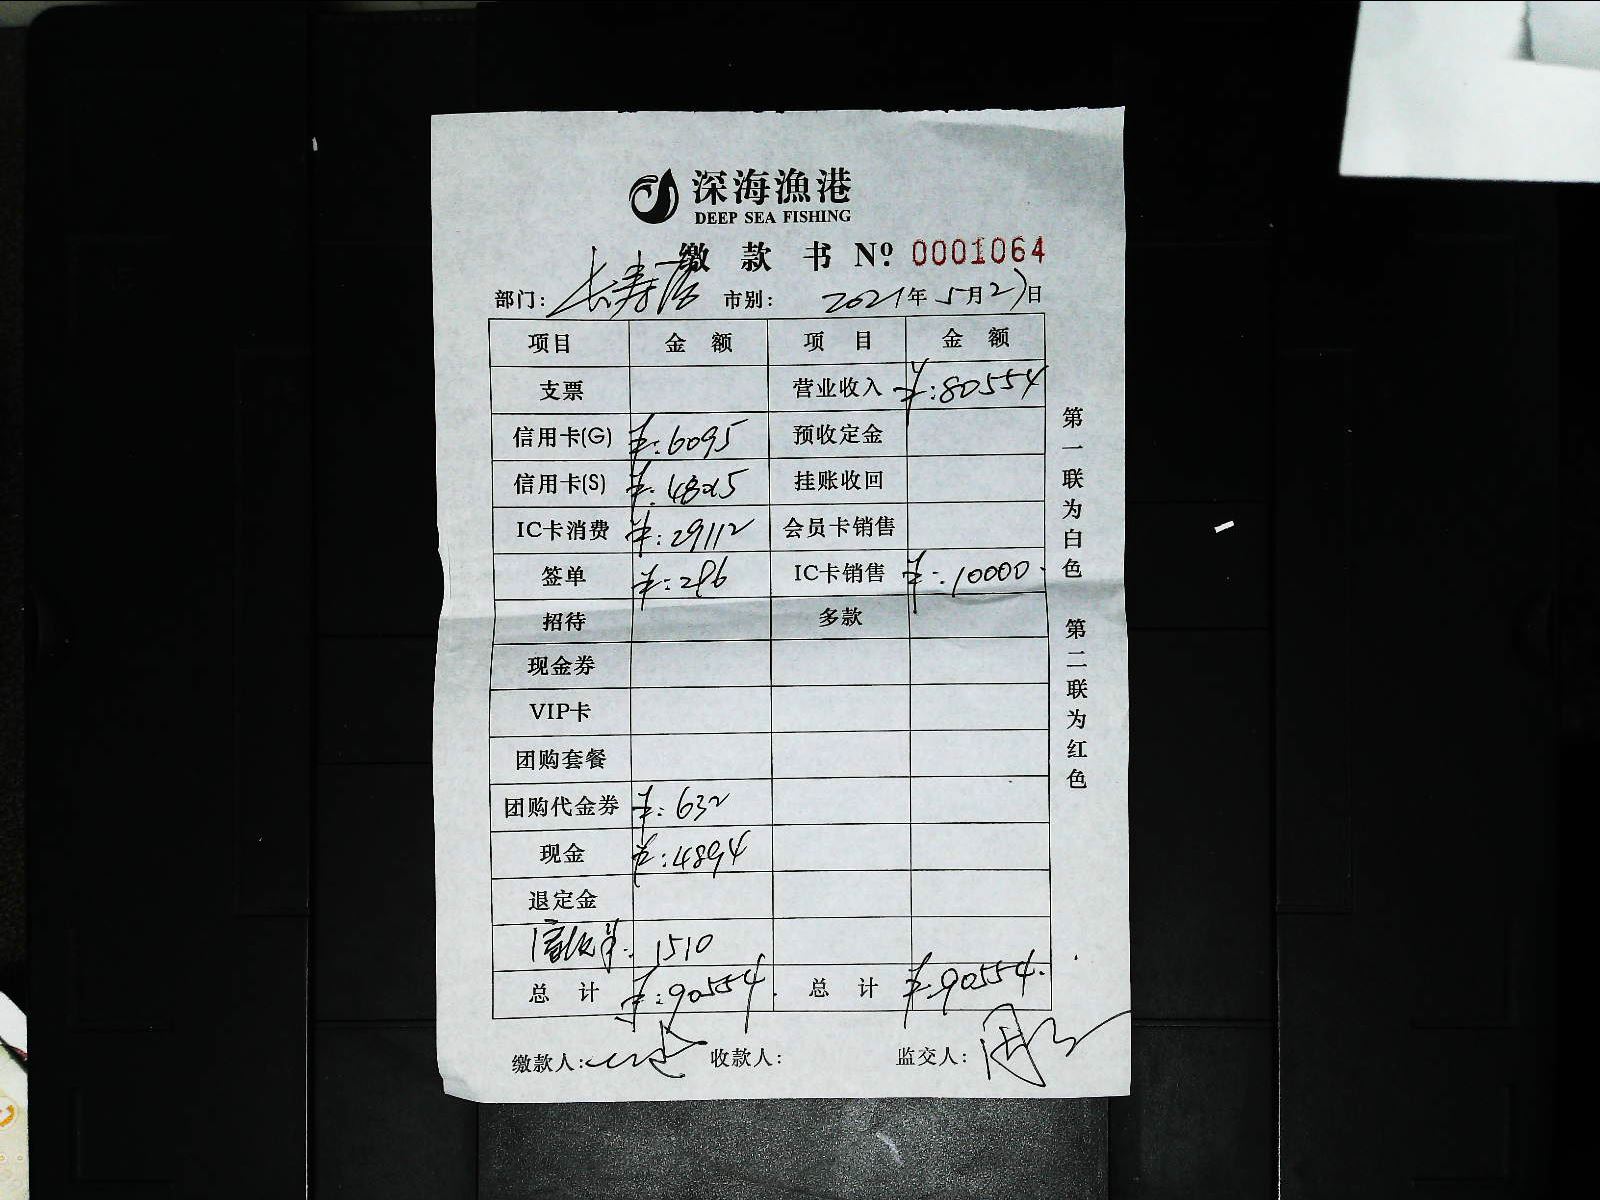 深海漁港
DEEP SEA FISHING
缴款书 Nº 0001064
部门: 长寿店 市别: 2021年5月27日
项目 金额 项目 金额
支票 营业收入 ¥:80554
信用卡(G) ¥:6095 预收定金
信用卡(S) ¥:48015 挂账收回
IC卡消费 ¥:29112 会员卡销售
签单 ¥:296 IC卡销售 ¥:10000.
招待 多款
现金券
VIP卡
团购套餐
团购代金券 ¥:632
现金 ¥:4894
退定金
1510
总计 ¥:90554. 总计 ¥:90554.
缴款人: 收款人: 监交人:
第一联为白色 第二联为红色